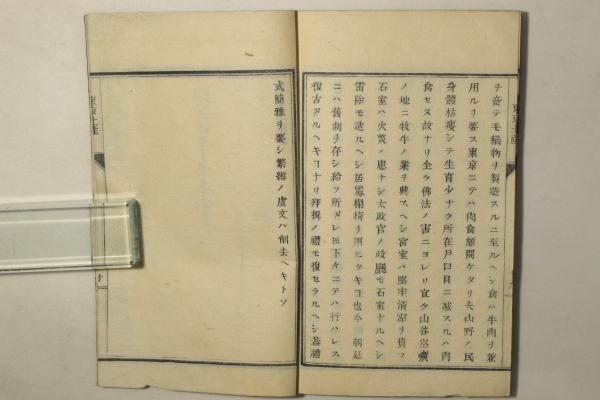 チ奇テモ織物ヲ製造スルニ至ルヘシ食ハ牛肉ヲ兼
用ルヲ要ス東京ニテハ肉食頗開ケタリ夫山野ノ民
身體枯痩シテ生育少ナク所在戸口日ニ減スルハ肉
食セヌ故ナリ全ク佛法ノ害ニヨレリ宜ク山谷空曠
ノ地ニ牧牛ノ業ヲ興スヘシ宮室ハ堅牢清潔ヲ貴フ
石室ハ火災ノ患ナシ太政官ノ政廳モ石室ナルヘシ
雷除モ造ルヘシ居處榻椅ヲ用ヒタキコ也今朝廷
ニハ舊制ヲ存シ給フ所アレ𪜈下々ニテハ行ハレス
復古アルヘキコナリ拜揖ノ禮モ復セラルヘシ葢禮
式簡雅ヲ要シ繁縟ノ虚文ハ削去ヘキトソ
東京土産
十
東京土産